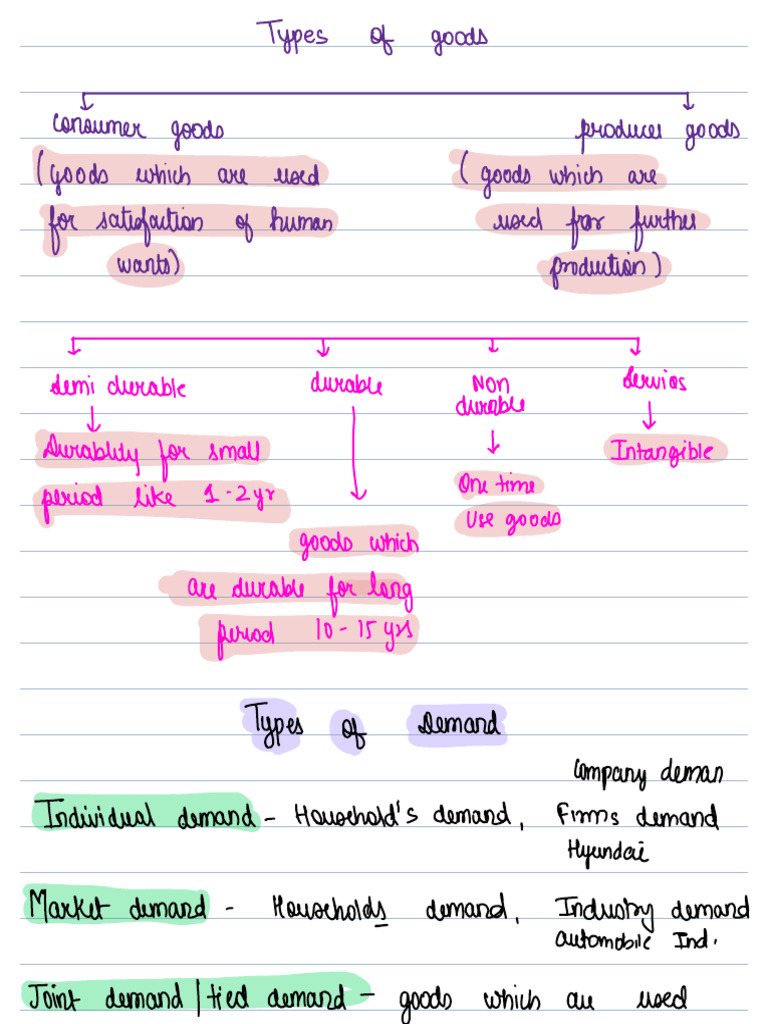 Types of goods
Consumer goods
producer goods
(goods which are used
for satisfaction of human
wants)
(goods which are
used for further
production)
Semi durable
durable
Non
durable
Servies
Durablity for small
period like 1-2 yr
goods which
are durable for long
period 10-15 yrs
One time
Use goods
Intangible
Types of Demand
Company deman
Individual demand - Household's demand, Firms demand
Hyundai
Market demand - Households demand, Industry demand
automobile Ind.
Joint demand / tied demand - goods which are used